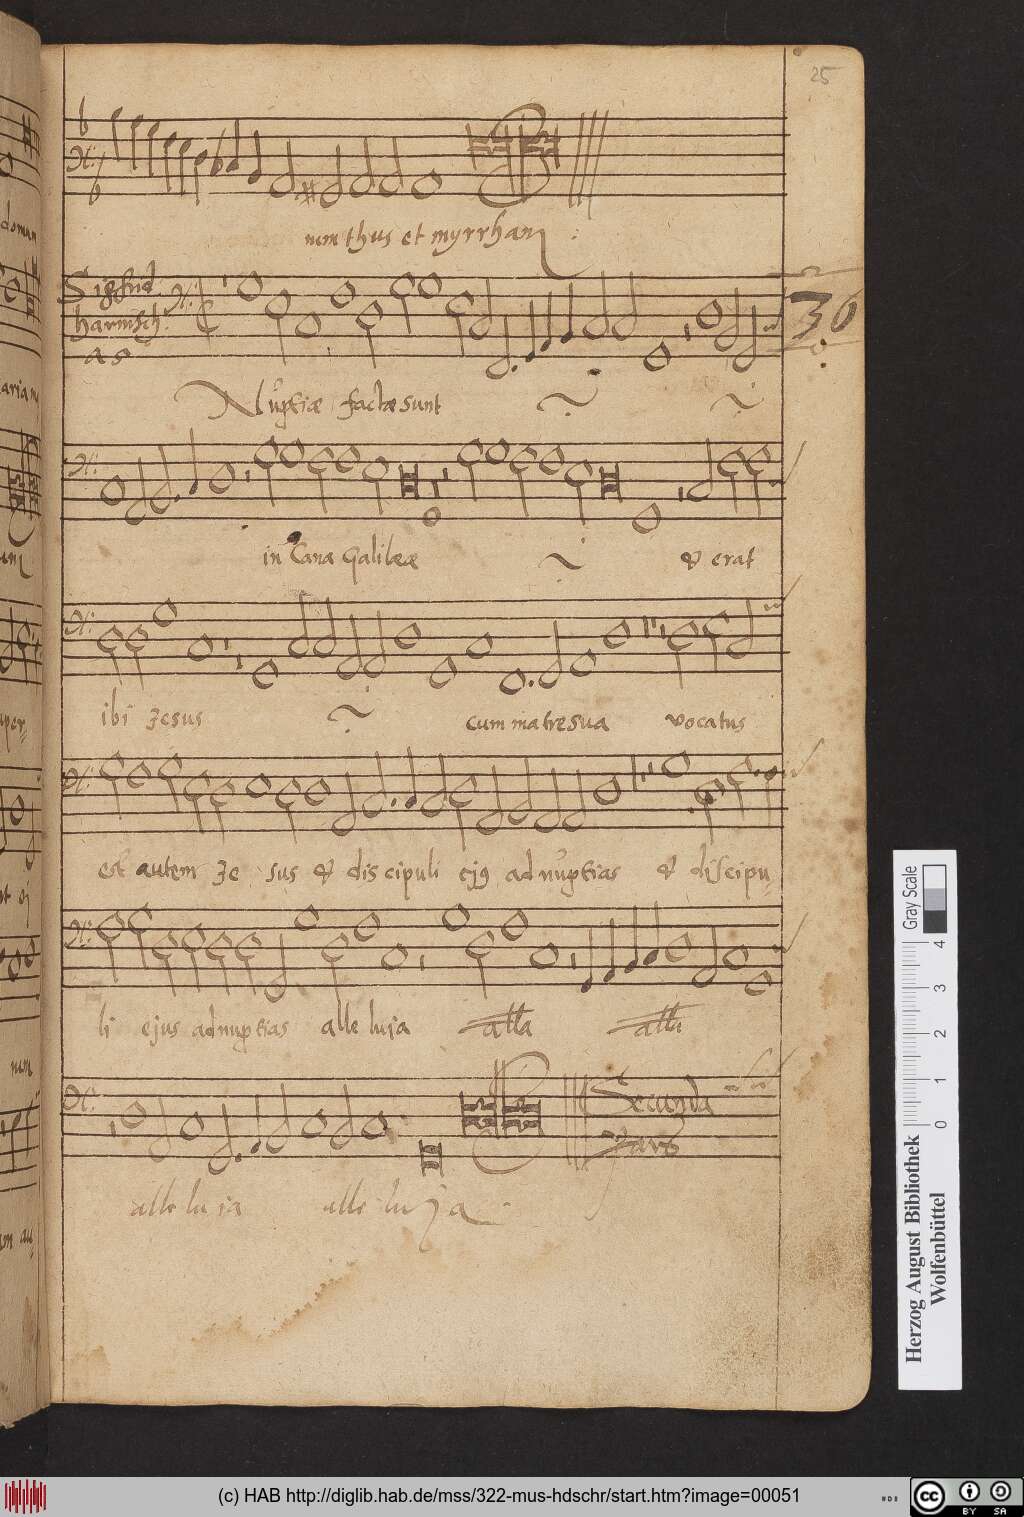 25
num thus et myrrham
Sigfrid
harnisch
as
36
Nuptiæ factæ sunt
in Cana Galilææ & erat
ibi Jesus cum matre sua vocatus
est autem Je sus & discipuli ej9 ad nuptias & discipu=
li ejus ad nuptias alle luja alla alla
Secunda
Pars
alle lu ia alle lu ja
Gray Scale
4
3
2
1
0
Herzog August Bibliothek
Wolfenbüttel
(c) HAB http://diglib.hab.de/mss/322-mus-hdschr/start.htm?image=00051
cc BY SA